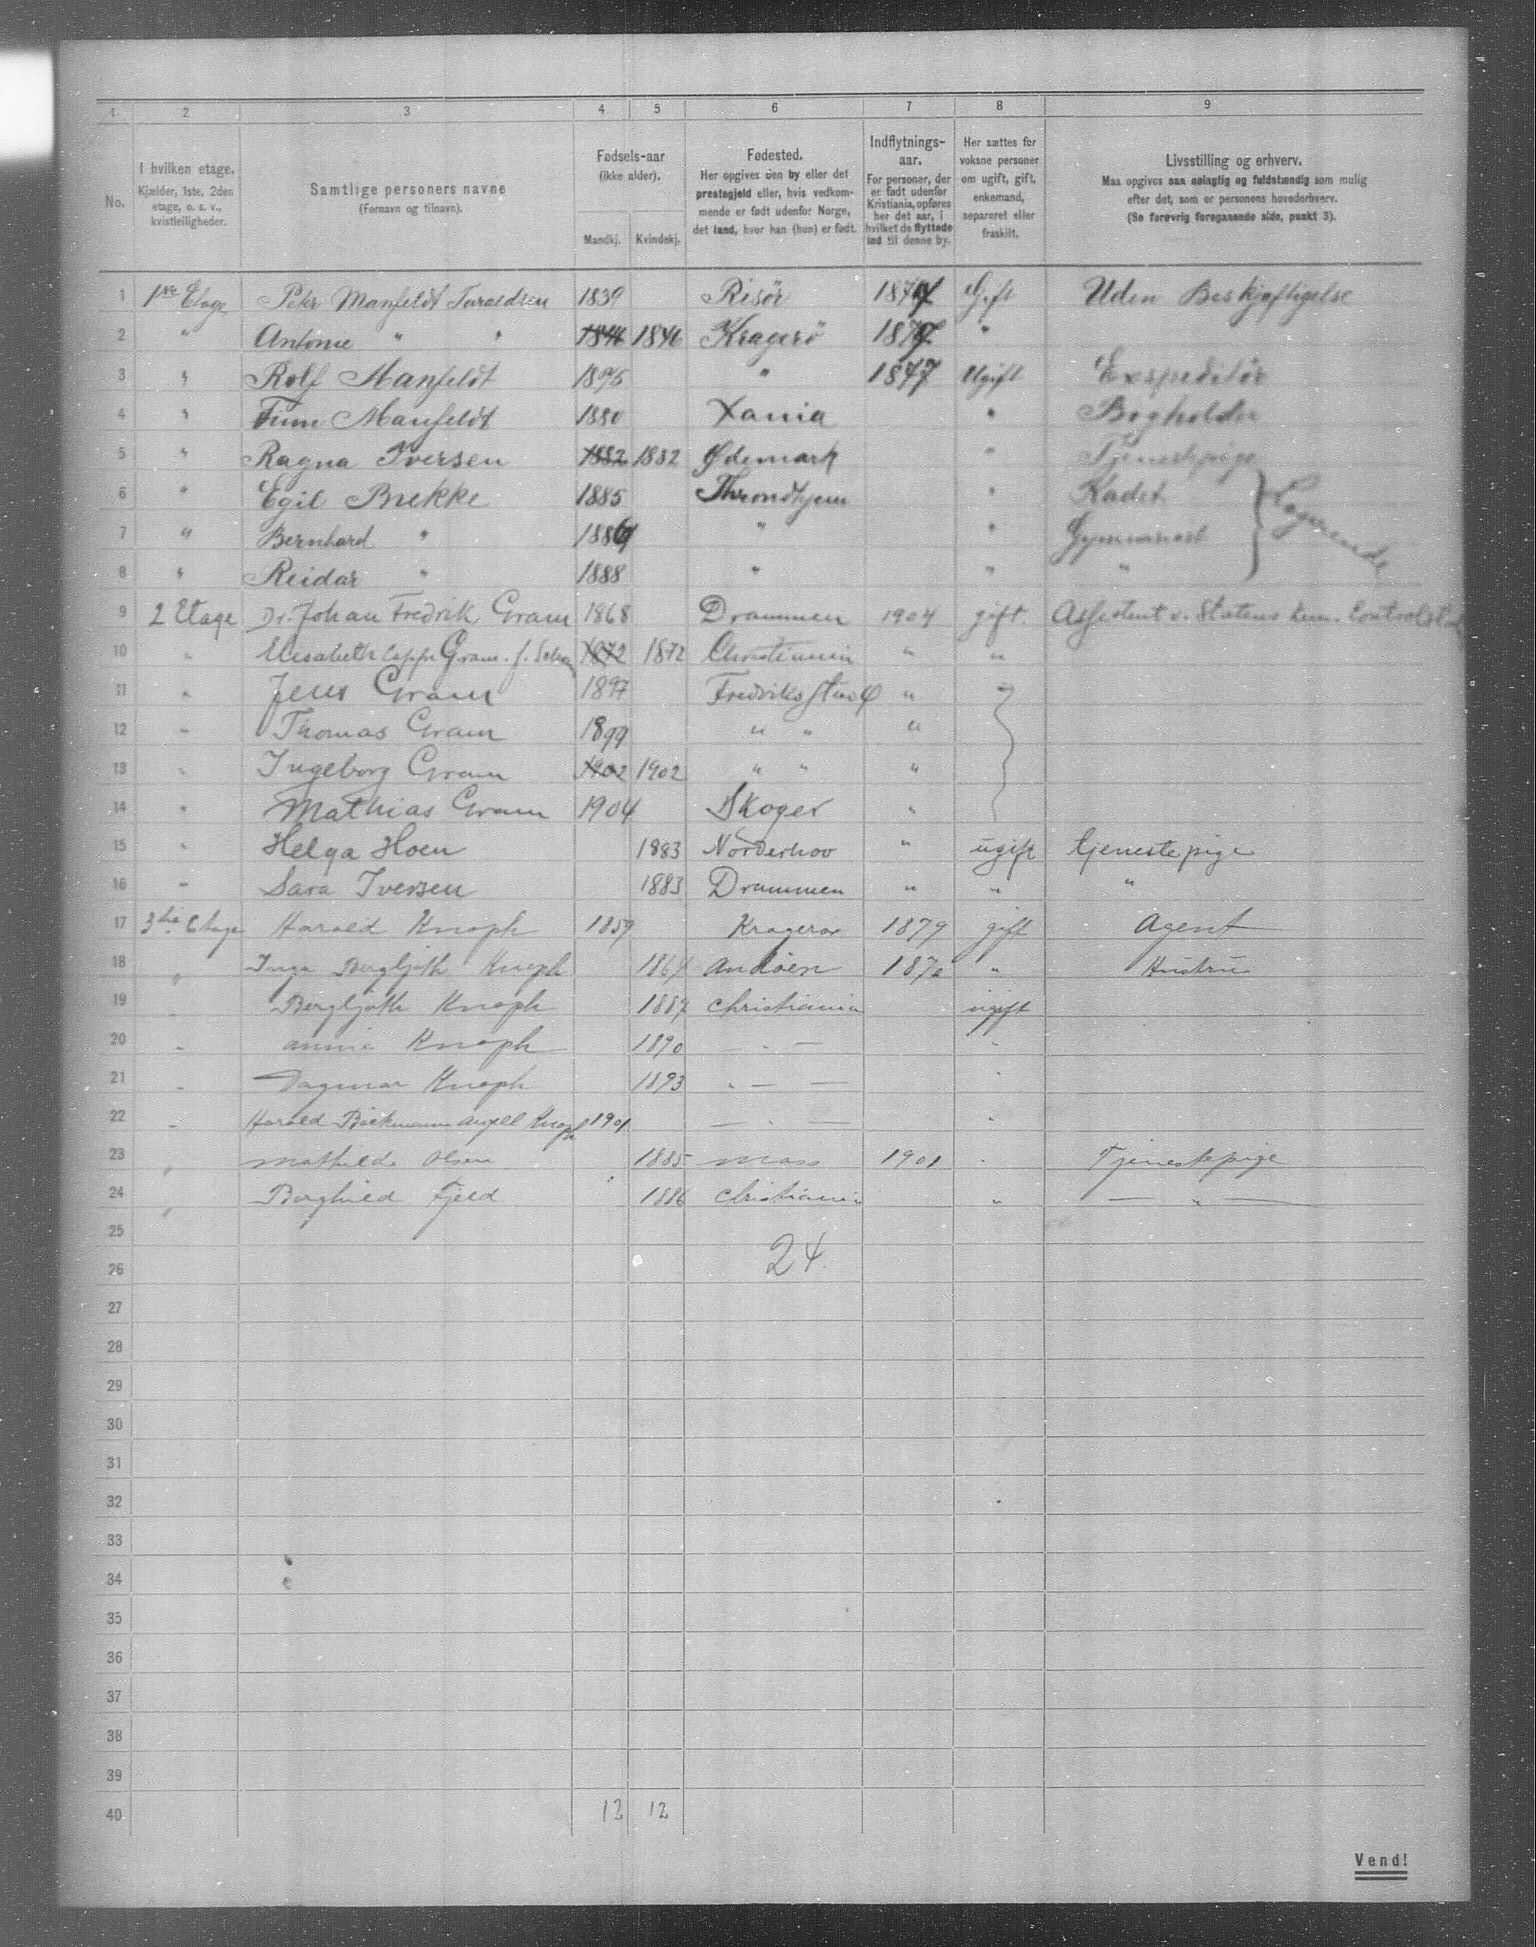 1 2 3 4 5 6 7 8 9
No.
I hvilken etage.
Kjælder, 1ste, 2den
etage, o. s. v.,
kvistleiligheder.
Samtlige personers navne
(Fornavn og tilnavn).
Fødsels-aar
(ikke alder).
Mandkj. Kvindekj.
Fødested.
Her opgives den by eller det
prestegjeld eller, hvis vedkom-
mende er født udenfor Norge,
det land, hvor han (hun) er født.
Indflytnings-
aar.
For personer, der
er født udenfor
Kristiania, opføres
her det aar, i
hvilket de flyttede
ind til denne by.
Her sættes for
voksne personer
om ugift, gift,
enkemand,
separeret eller
fraskilt.
Livsstilling og erhverv.
Maa opgives saa nøiagtig og fuldstændig som mulig
efter det, som er personens hovederhverv.
(Se forøvrig foregaaende side, punkt 3).
1 1ste Etage Peter Manfeldt Taraldsen 1839 Risör Gift Uden Beskjæftigelse
2 " Antonie " " 1846 1846 Kragerö "
3 " Rolf Manfeldt " 1877 Ugift Expeditör
4 " Finn Manfeldt 1880 Xania " Bogholder
5 " Ragna Iversen 1882 1882 Ødemark " Tjenestepige
6 " Egil Brekke 1885 Throndhjem " Kadet } Logerende
7 " Bernhard " 1886 " " Gymnasiast
8 " Reidar " 1888 " " "
9 2 Etage Dr. Johan Fredrik Gram 1868 Drammen 1904 gift. Assistent v. Statens kem. Controlst.
10 " Elisabeth Gram f. 1872 1872 Christiania " "
11 " Jens Gram 1897 Fredriksstad "
12 " Thomas Gram 1899 " " "
13 " Ingeborg Gram 1902 1902 " " "
14 " Mathias Gram 1904 Skoger "
15 " Helga Hoen 1883 Norderhov " ugift tjenestepige
16 " Sara Iversen 1883 Drammen " " "
17 3die Etage Harald Knoph 1859 Kragerø 1879 gift Agent
18 " Inga Bergljoth Knoph 1864 Andöen " Hustru
19 " Bergljoth Knoph 1887 Christiania ugift
20 " Annie Knoph 1890 — " — "
21 " Dagmar Knoph 1893 " — — "
22 " Harald Böckmann Knoph 1901 — " — "
23 " Mathilde Olsen 1885 Moss 1901 " Tjenestepige
24 " Borghild Fjeld 1886 Christiania " — " —
25 24
26
27
28
29
30
31
32
33
34
35
36
37
38
39
40 12 12
Vend!